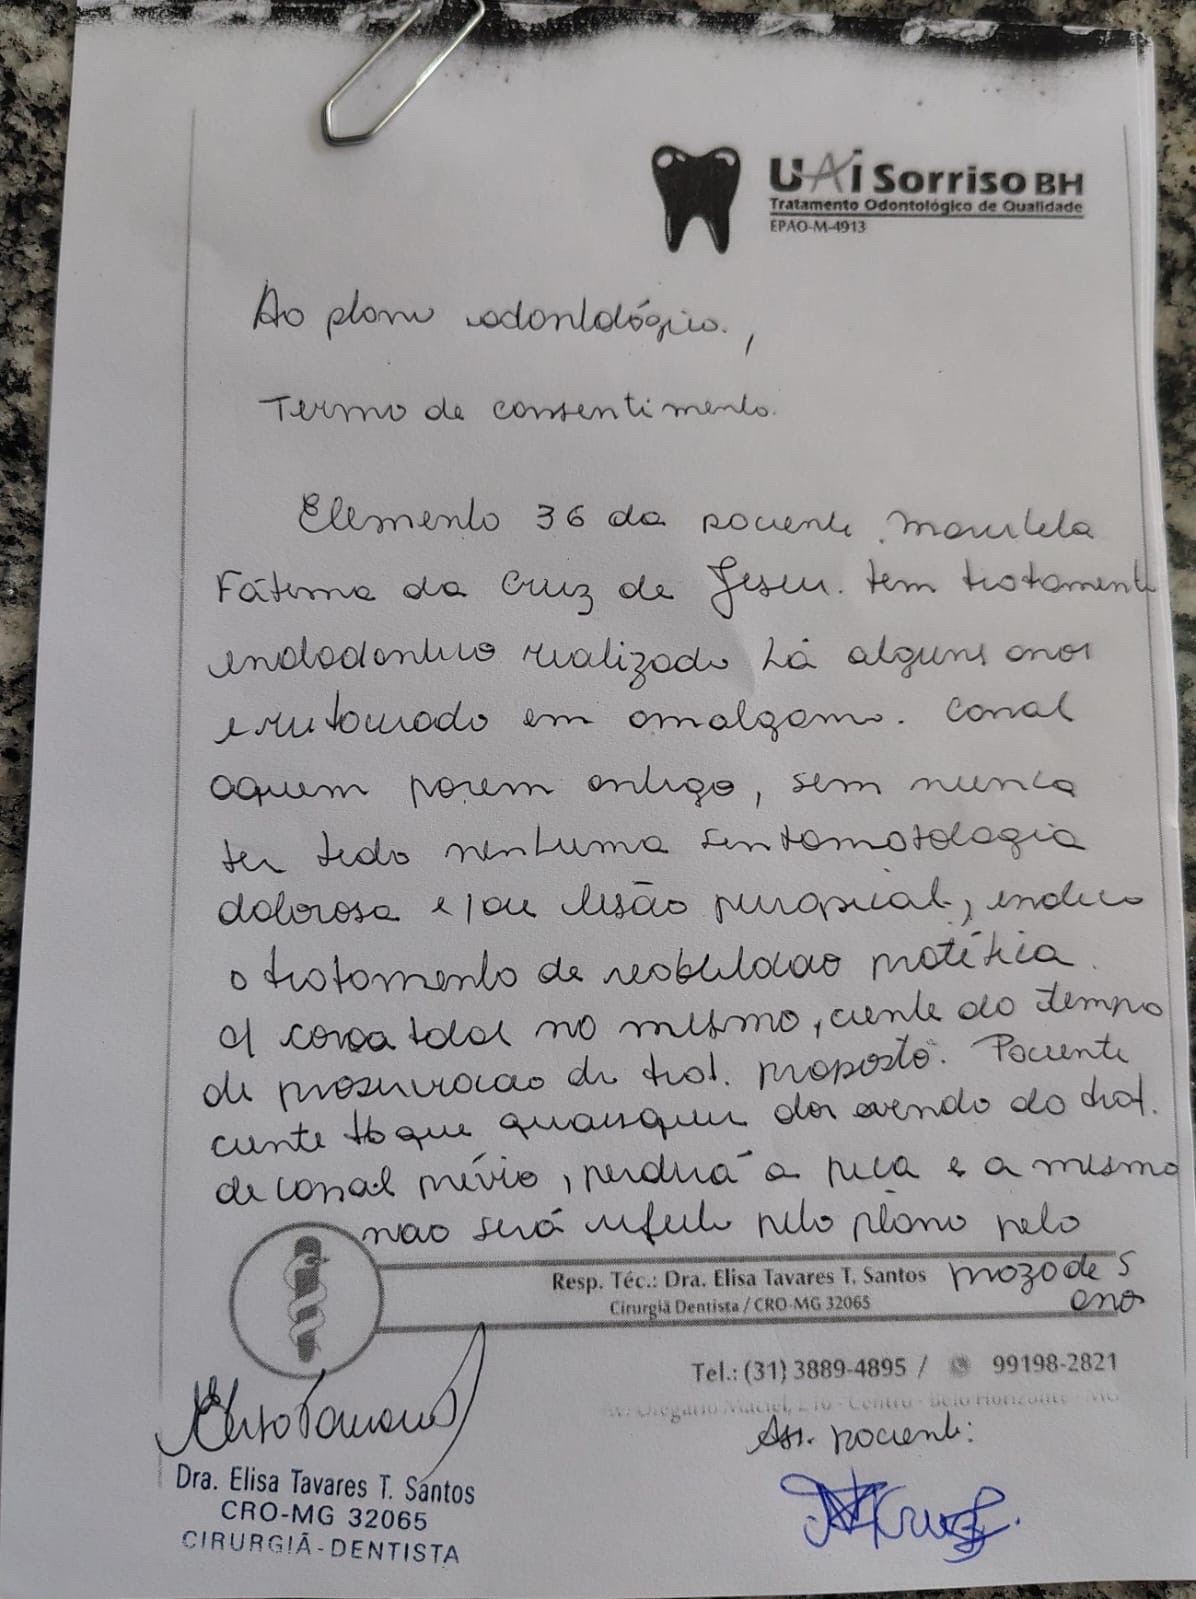 UAi Sorriso BH
Tratamento Odontológico de Qualidade
EPAO-M-4913
Ao plano odontológico,
Termo de consentimento.
Elemento 36 da paciente
Fátima da Cruz de Jesus. tem tratamento
endodontico realizado há alguns anos
e restaurado em amalgama. Canal
aquem porem antigo, sem nunca
ter tido nenhuma sintomatologia
dolorosa e/ou lesão periapical, indico
o tratamento de reabilidação protética
c/ coroa total no mesmo, ciente do tempo
de proservacao do trat. proposto. Paciente
ciente q que quaisquer dor do trat.
de canal prévio, perderá a peca e a mesma
nao será refeita pelo plano pelo
prazo de 5
anos
Resp. Téc.: Dra. Elisa Tavares T. Santos
Cirurgiã Dentista / CRO-MG 32065
Tel.: (31) 3889-4895 / 99198-2821
Av. Olegário Maciel, 216 - Centro - Belo Horizonte - MG
Ass. paciente:
Dra. Elisa Tavares T. Santos
CRO-MG 32065
CIRURGIÃ-DENTISTA